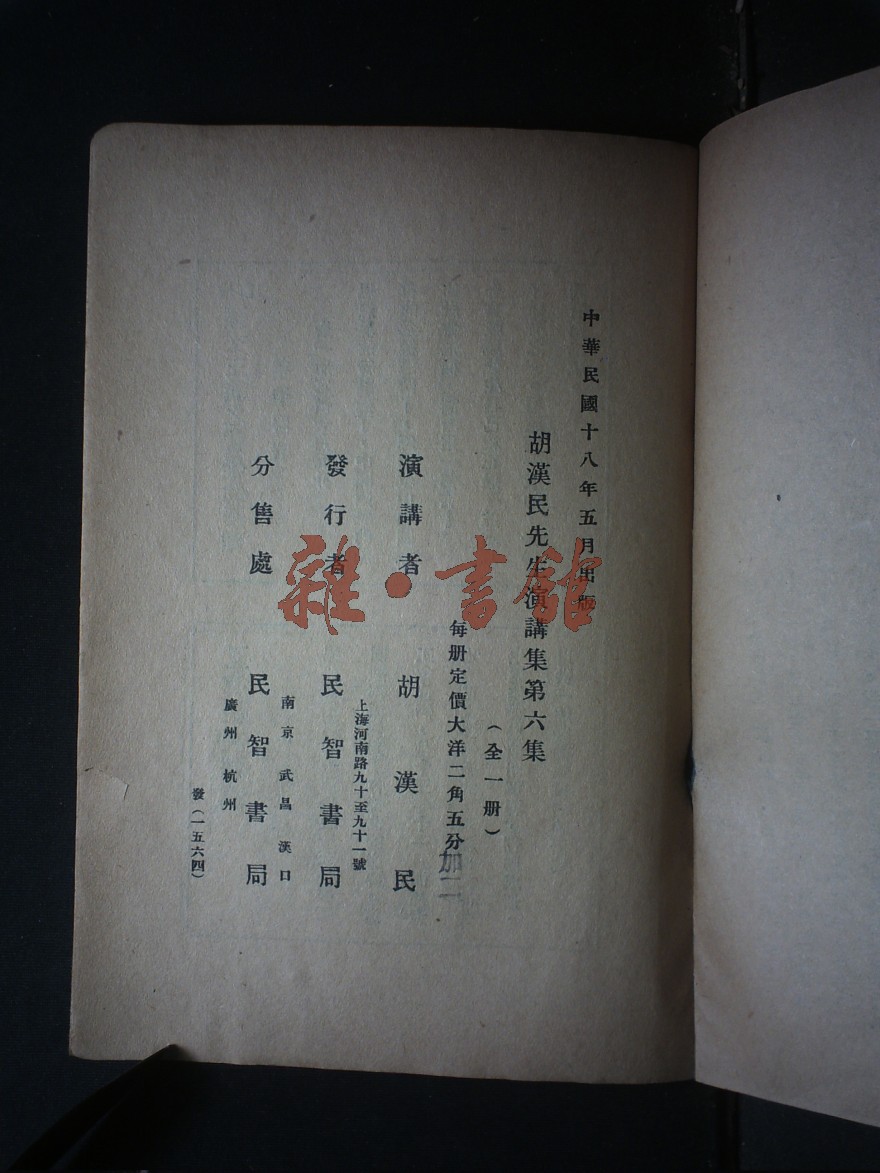 中華民國十八年五月出版
胡漢民先生演講集第六集
（全一册）
每册定價大洋二角五分
加二
演講者 胡漢民
上海河南路九十至九十一號
發行者 民智書局
南京 武昌 漢口
分售處 民智書局
廣州 杭州
發（一五六四）
雜·書館